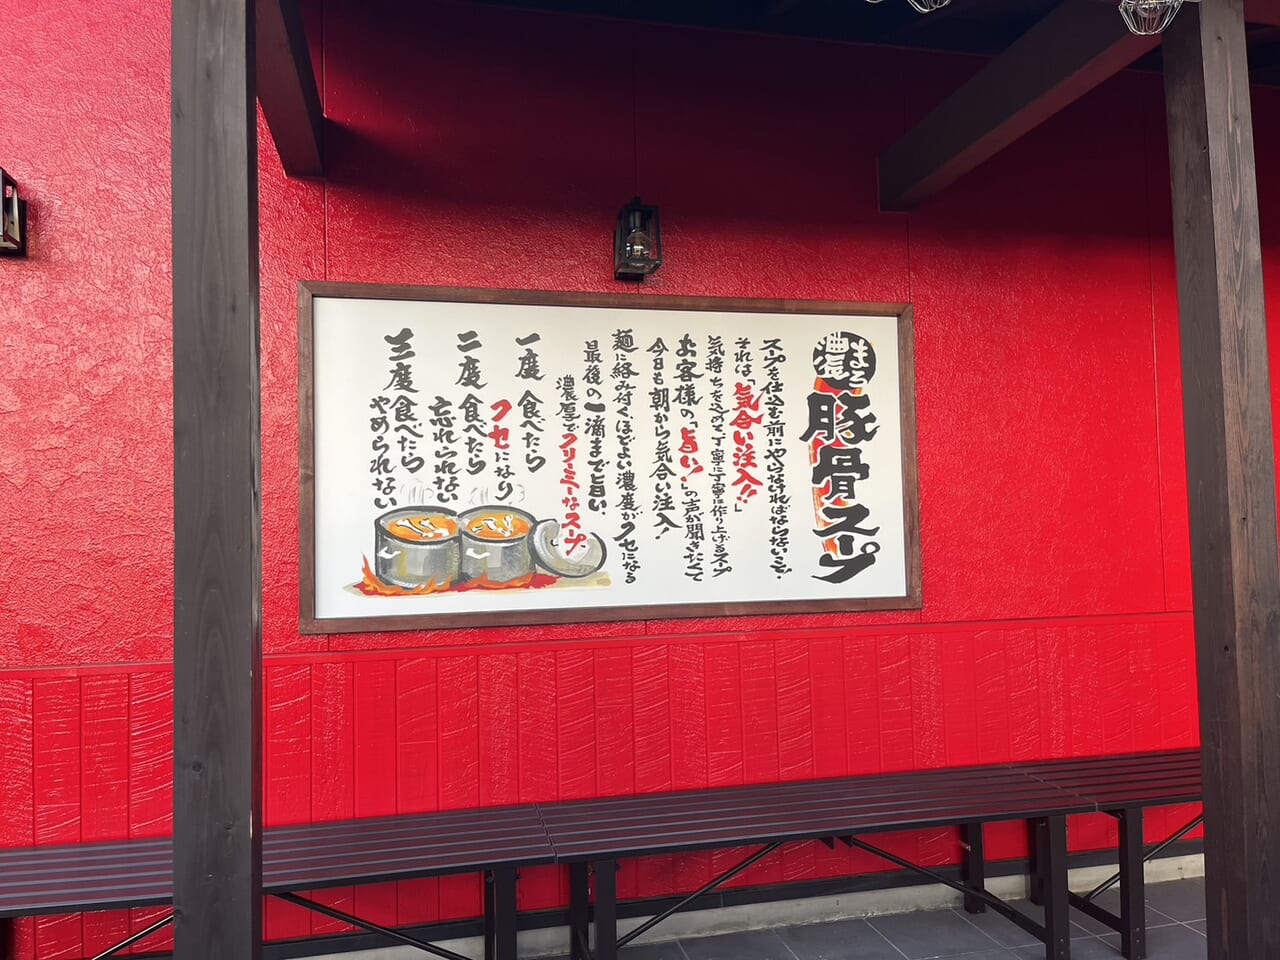 濃信まろ
豚骨スープ
スープを仕込む前にやらなければならないこと、
それは「気合い注入!!」
気持ちを込めて、丁寧に丁寧に作り上げるスープ
お客様の「旨い!」の声が聞きたくて
今日も朝から気合い注入!
麺に絡み付く、ほどよい濃度がクセになる
最後の一滴まで旨い、
濃厚でクリーミーなスープ
一度食べたら
クセになり
二度食べたら
忘れられない
三度食べたら
やめられない